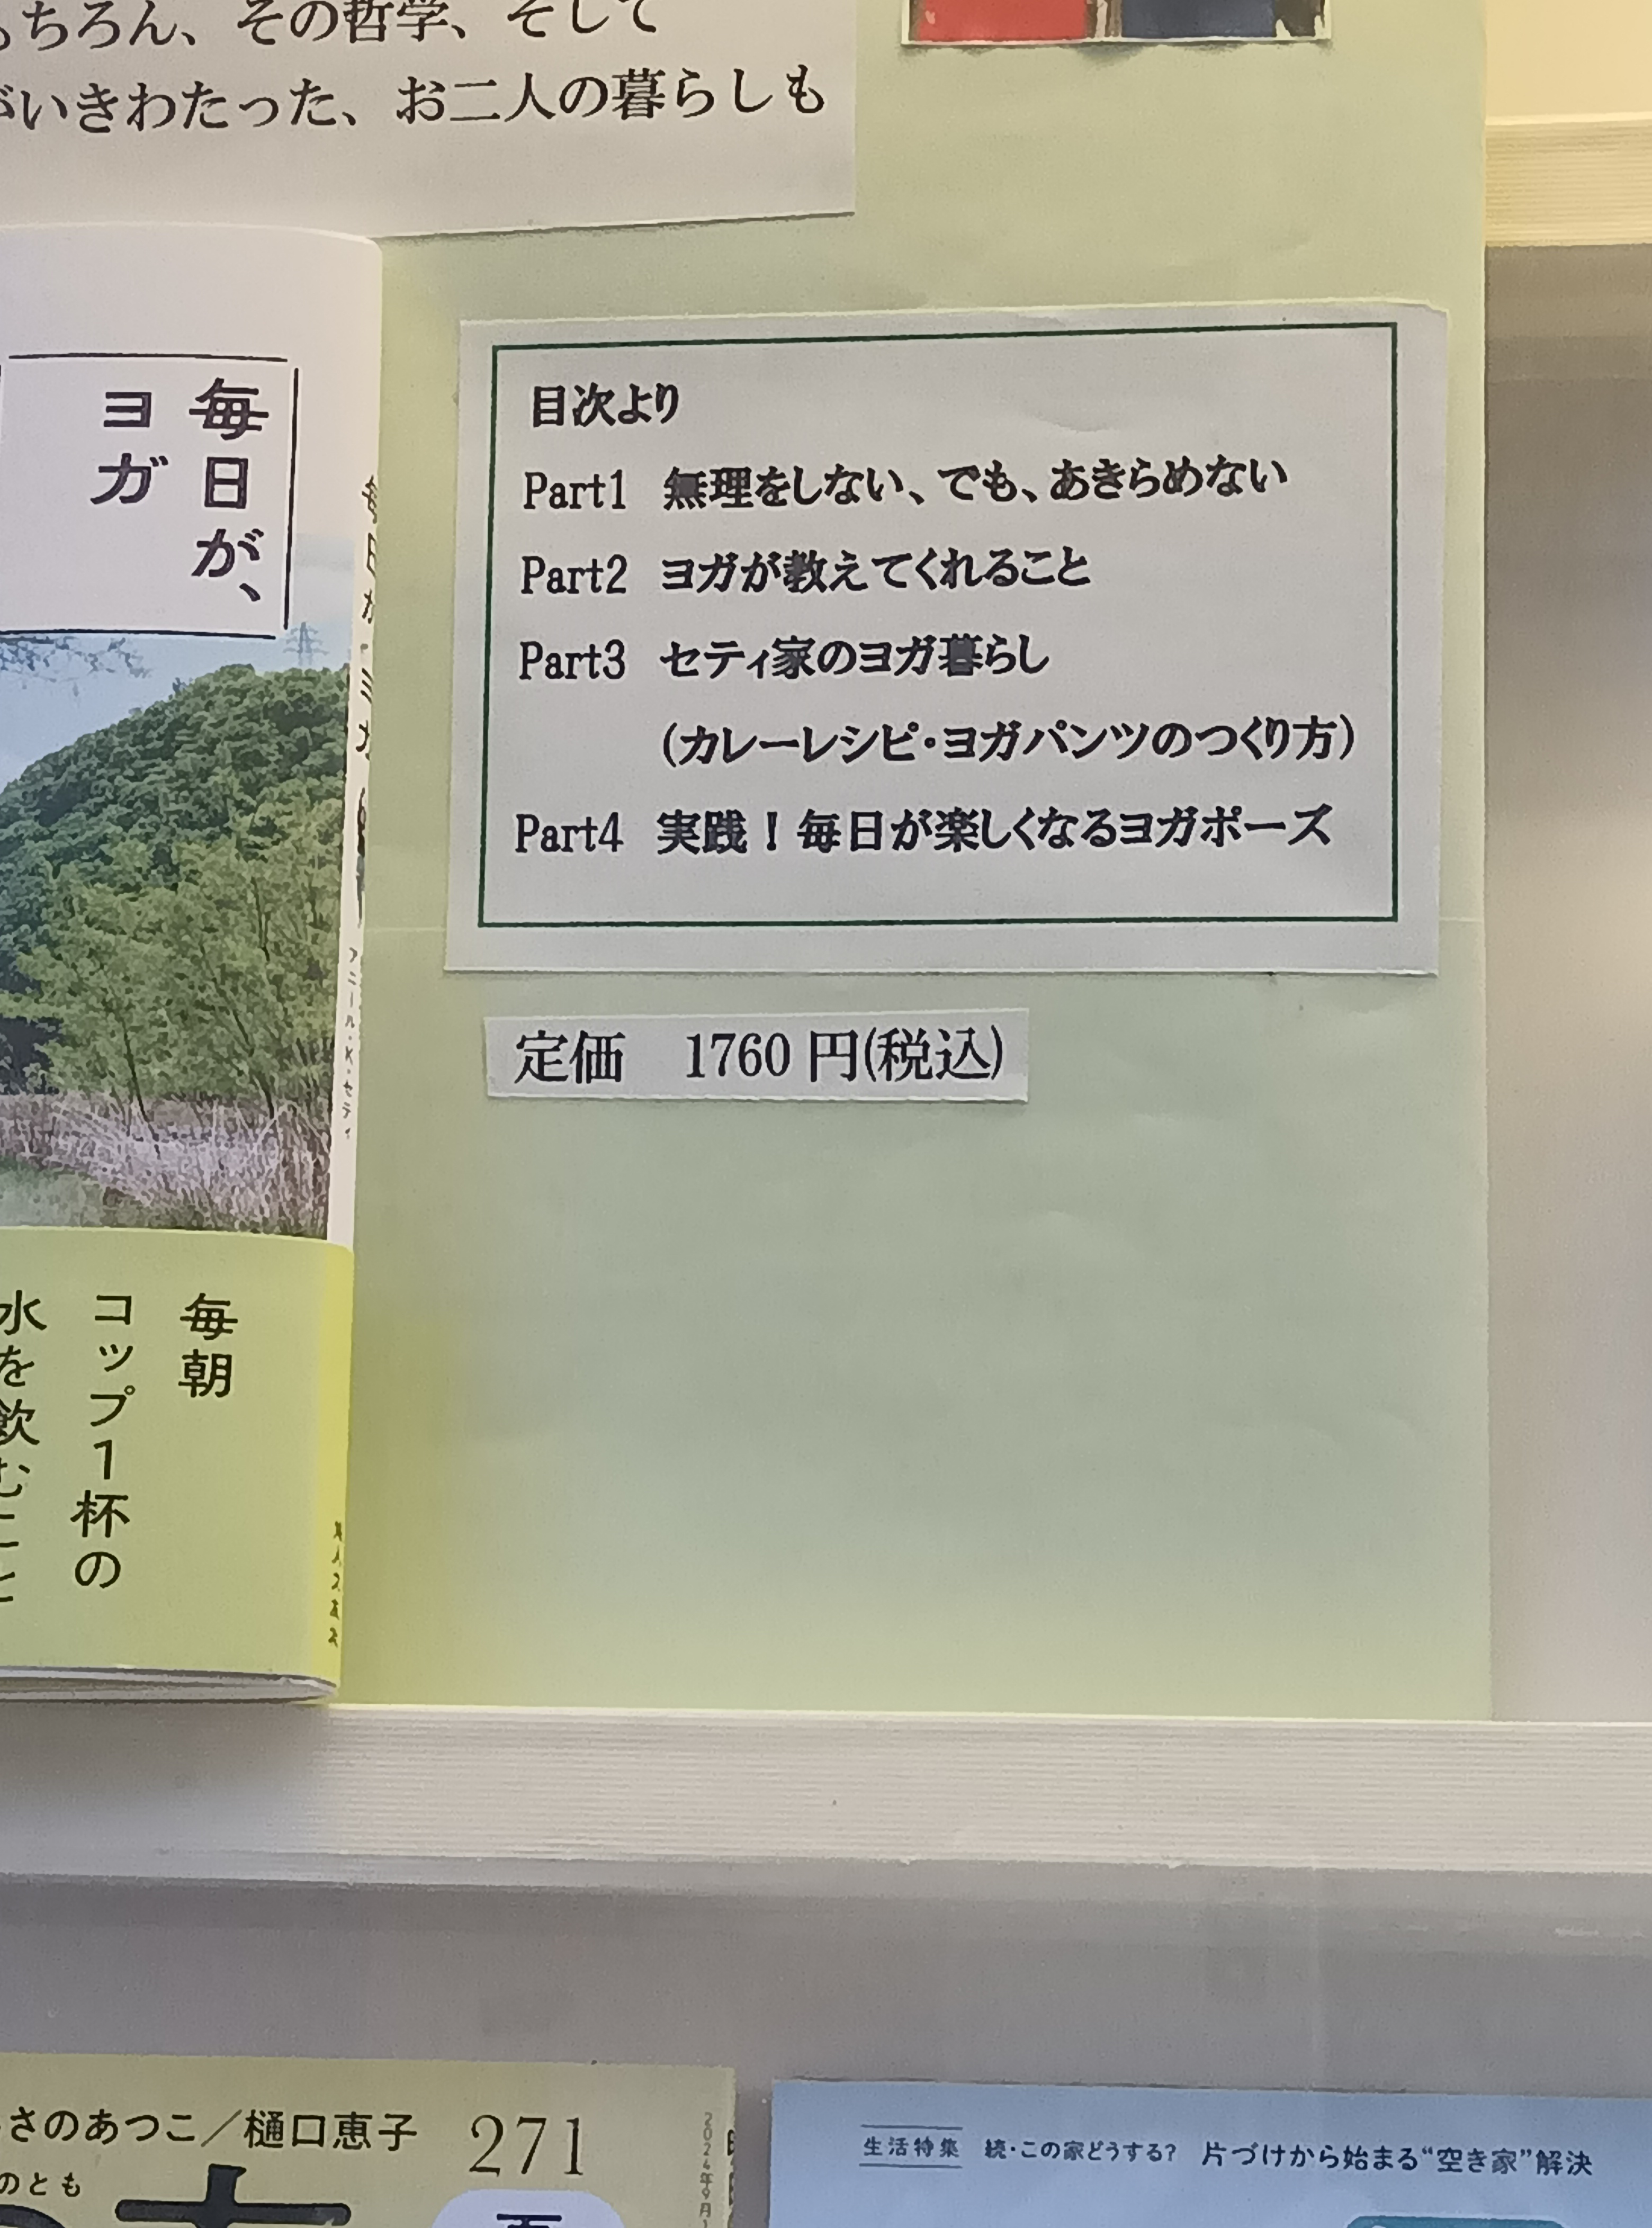 ちろん、その哲学、そして
いきわたった、お二人の暮らしも
毎日が、
ヨガ
アニール・K・セティ
毎朝
コップ1杯の
水を飲むこと
目次より
Part1 無理をしない、でも、あきらめない
Part2 ヨガが教えてくれること
Part3 セティ家のヨガ暮らし
(カレーレシピ・ヨガパンツのつくり方)
Part4 実践!毎日が楽しくなるヨガポーズ
定価 1760円(税込)
さのあつこ/樋口恵子 271
のとも
2024年9月
生活特集 続・この家どうする? 片づけから始まる“空き家”解決